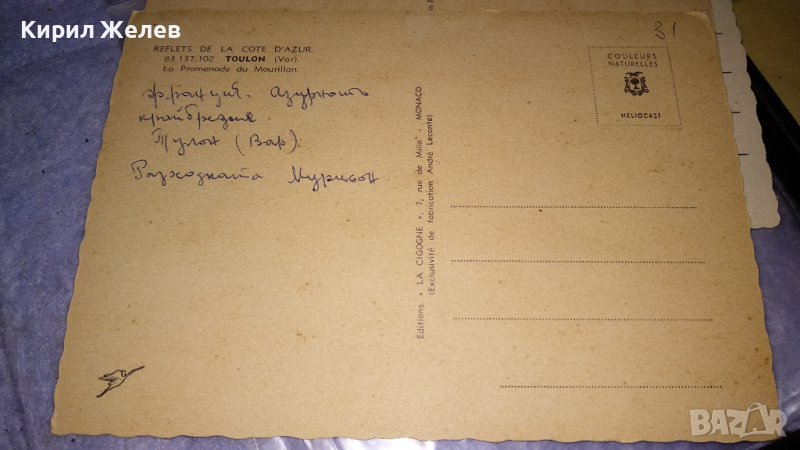 Кирил Желев
31
REFLETS DE LA COTE D'AZUR.
83.137.102 TOULON (Var)
La Promenade du Mourillon.
Франция. Азурното
крайбрежие.
Тулон (Вар).
Разходката Мурийон.
COULEURS
NATURELLES
HELIOCAST
Editions « LA CIGOGNE », 7, rue de Millo - MONACO
(Exclusivité de fabrication André Leconte)
BAZAR
bg